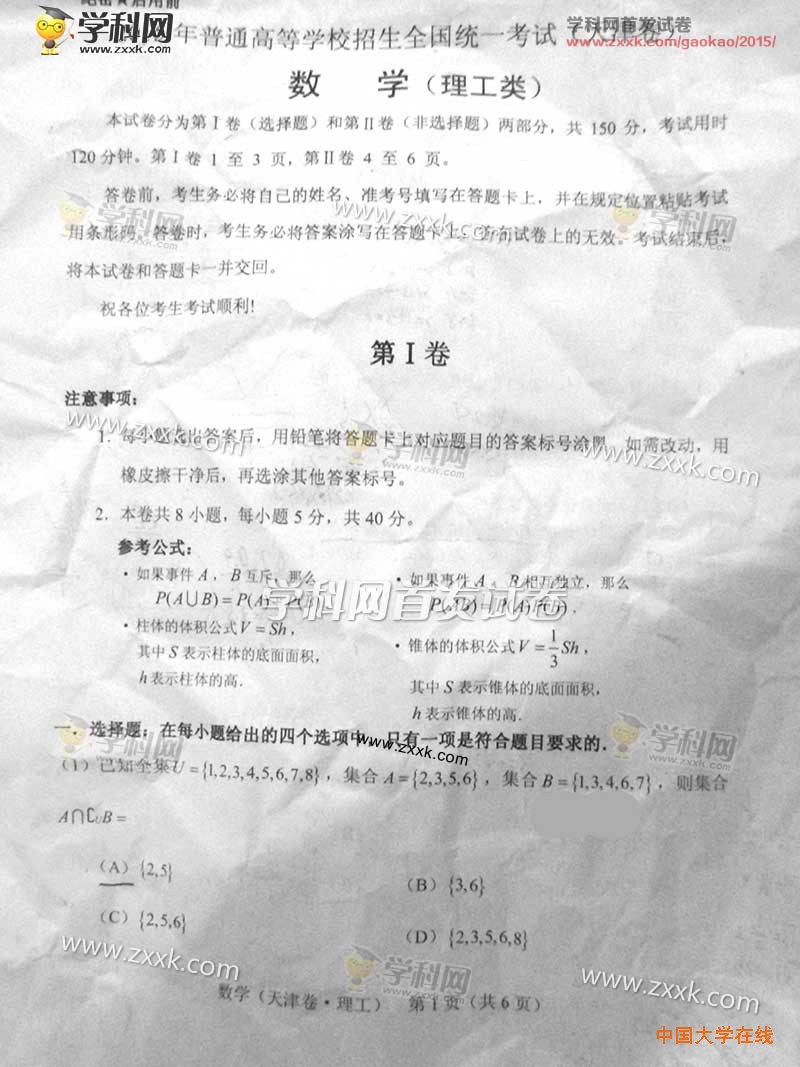 绝密★启用前
年普通高等学校招生全国统一考试（天津卷）
学科网首发试卷
www.zxxk.com/gaokao/2015/
学科网
www.zxxk.com
数 学（理工类）
本试卷分为第Ⅰ卷（选择题）和第Ⅱ卷（非选择题）两部分，共 150 分，考试用时
120 分钟。第Ⅰ卷 1 至 3 页，第Ⅱ卷 4 至 6 页。
答卷前，考生务必将自己的姓名、准考号填写在答题卡上，并在规定位置粘贴考试
用条形码。答卷时，考生务必将答案涂写在答题卡上，答在试卷上的无效。考试结束后，
将本试卷和答题卡一并交回。
祝各位考生考试顺利!
第Ⅰ卷
注意事项:
1. 每小题选出答案后，用铅笔将答题卡上对应题目的答案标号涂黑。如需改动，用
橡皮擦干净后，再选涂其他答案标号。
2. 本卷共 8 小题，每小题 5 分，共 40 分。
参考公式:
· 如果事件 A ，B 互斥，那么
P(A∪B) = P(A)+P(B).
· 如果事件 A 、B 相互独立，那么
P(AB) = P(A)P(B).
学科网首发试卷
· 柱体的体积公式 V = Sh，
其中 S 表示柱体的底面面积，
h 表示柱体的高.
· 锥体的体积公式 V = 1/3 Sh，
其中 S 表示锥体的底面面积，
h 表示锥体的高.
一. 选择题: 在每小题给出的四个选项中，只有一项是符合题目要求的.
（1）已知全集 U = {1,2,3,4,5,6,7,8} ，集合 A = {2,3,5,6} ，集合 B = {1,3,4,6,7} ，则集合
A∩∁UB =
（A）{2,5}
（B）{3,6}
（C）{2,5,6}
（D）{2,3,5,6,8}
www.zxxk.com
学科网
www.zxxk.com
数学（天津卷·理工） 第 1 页（共 6 页）
中国大学在线